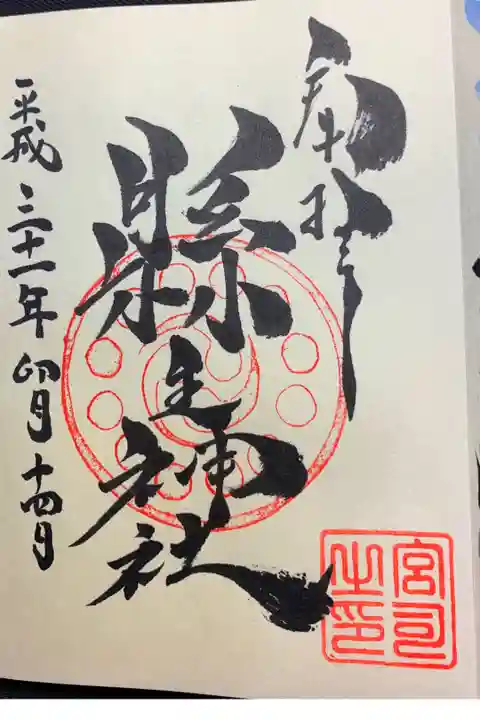 奉拝
縣主神社
平成三十一年卯月十四日
宮司之印